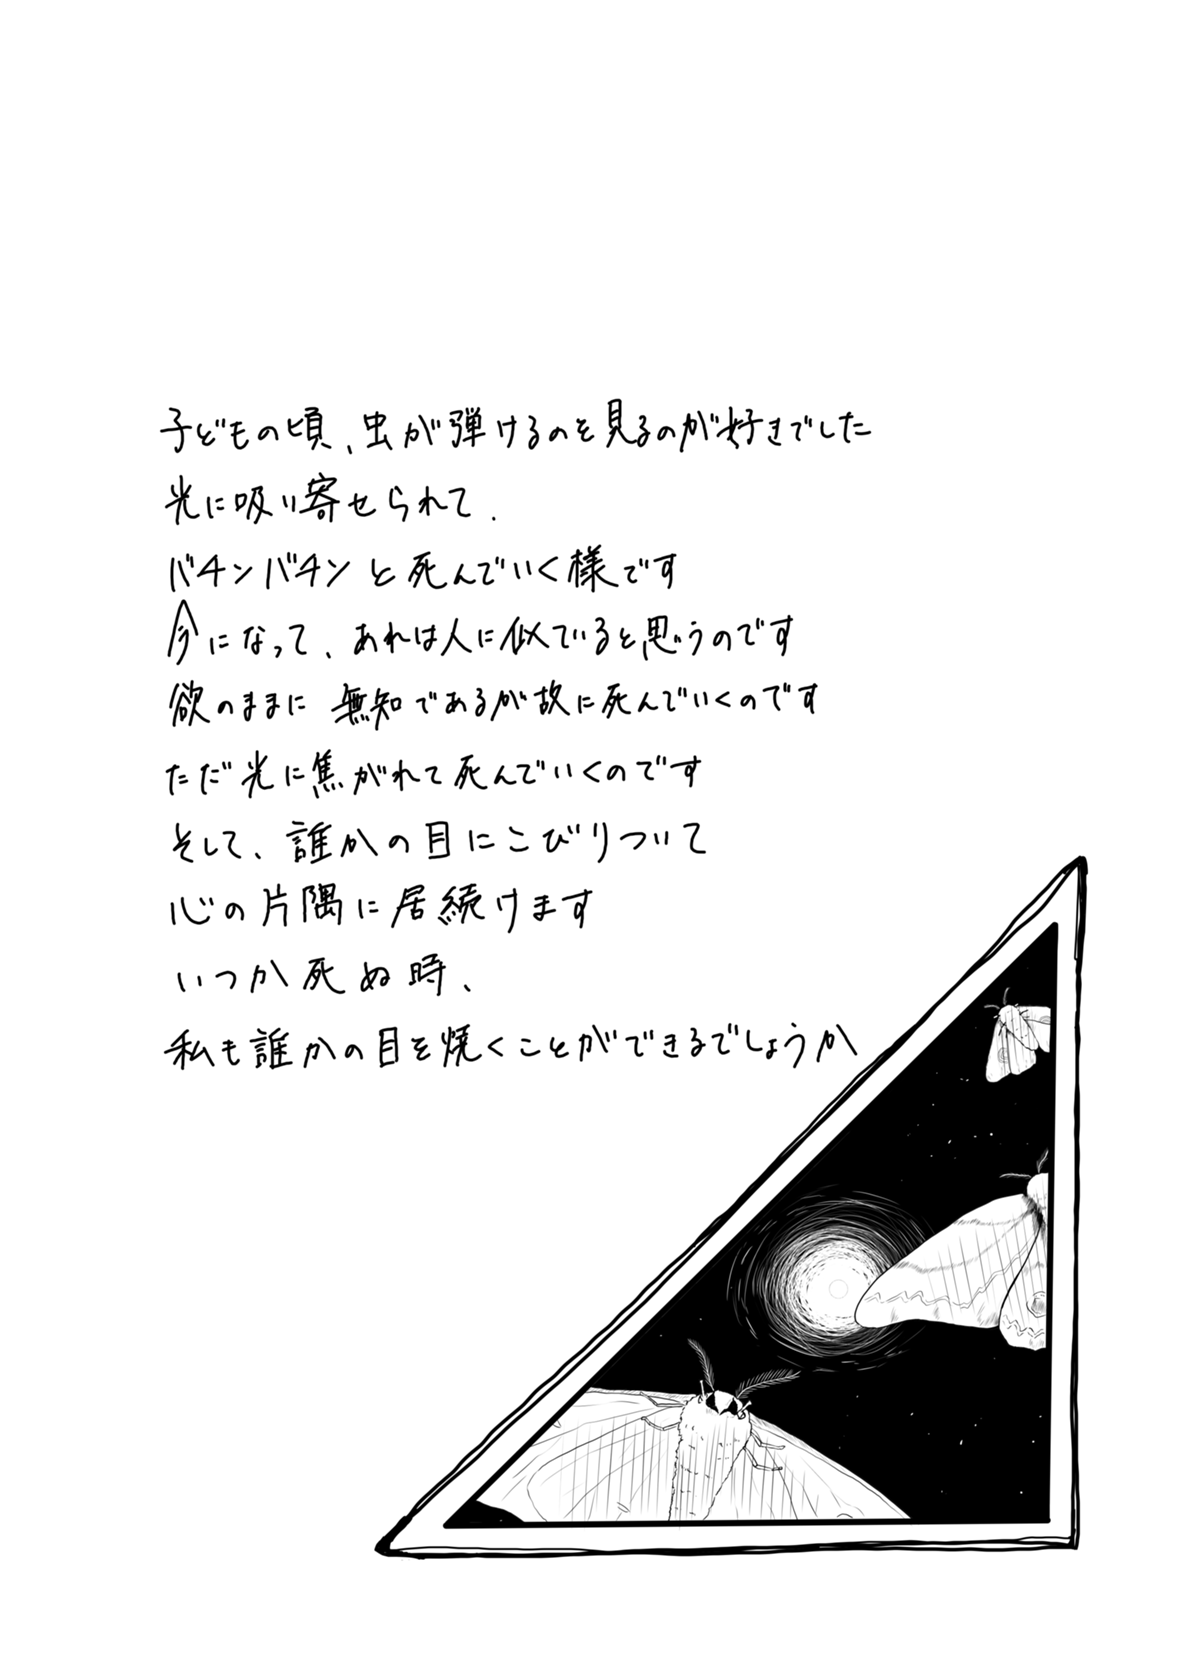 子どもの頃、虫が弾けるのを見るのが好きでした
光に吸い寄せられて、
バチンバチンと死んでいく様です
今になって、あれは人に似ていると思うのです
欲のままに 無知であるが故に死んでいくのです
ただ光に焦がれて死んでいくのです
そして、誰かの目にこびりついて
心の片隅に居続けます
いつか死ぬ時、
私も誰かの目を焼くことができるでしょうか